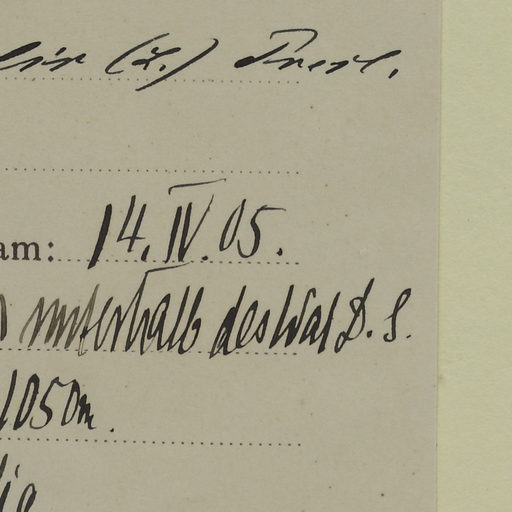 (L.) Presl.
am: 14. IV. 05.
unterhalb des Wal D. S.
1050 m.